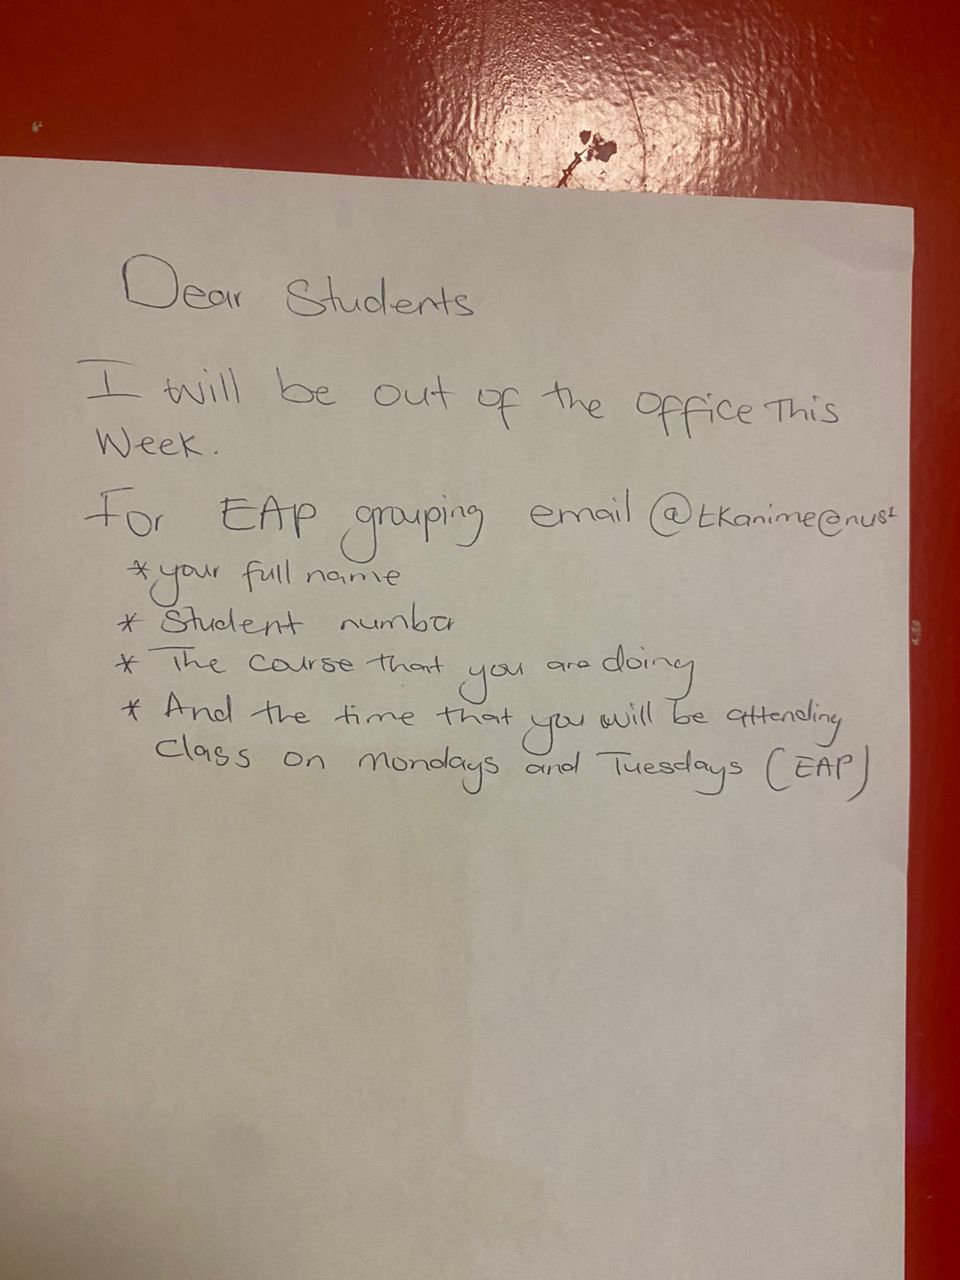 Dear Students
I will be out of the office This
Week.
For EAP grouping email @tkanime@nust
* your full name
* Student number
* The course that you are doing
* And the time that you will be attending
class on Mondays and Tuesdays (EAP)